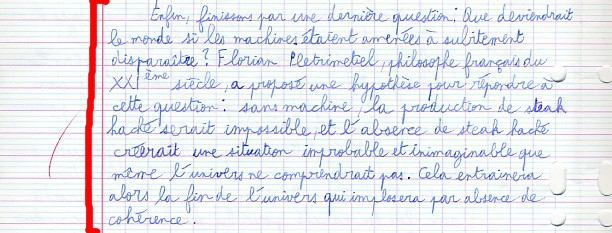 Enfin, finissons par une dernière question: Que deviendrait
le monde si les machines étaient amenées à subitement
disparaître? Florian Pletrimetiel, philosophe français du
XXIème siècle, a proposé une hypothèse pour répondre à
cette question: sans machine, la production de steak
haché serait impossible, et l'absence de steak haché
créerait une situation improbable et inimaginable que
même l'univers ne comprendrait pas. Cela entrainera
alors la fin de l'univers qui implosera par absence de
cohérence.